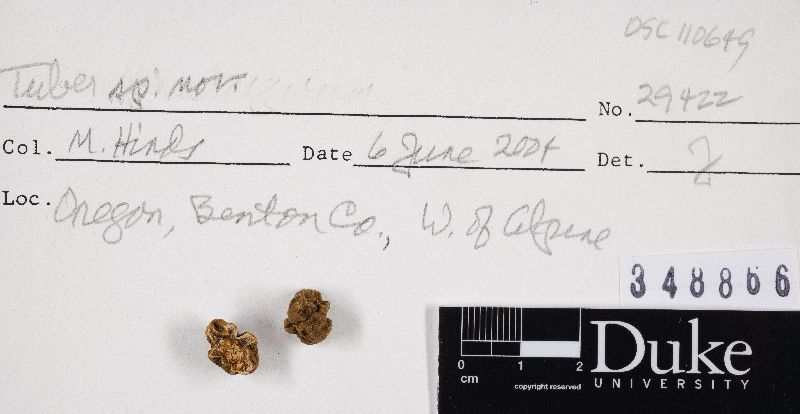 DSC 110649
Tuber sp. nov.
No. 29422
Col. M. Hinds Date 6 June 2004 Det. J
Loc. Oregon, Benton Co., W. of Alpine
348866
0 1 2
cm
copyright reserved
Duke
UNIVERSITY